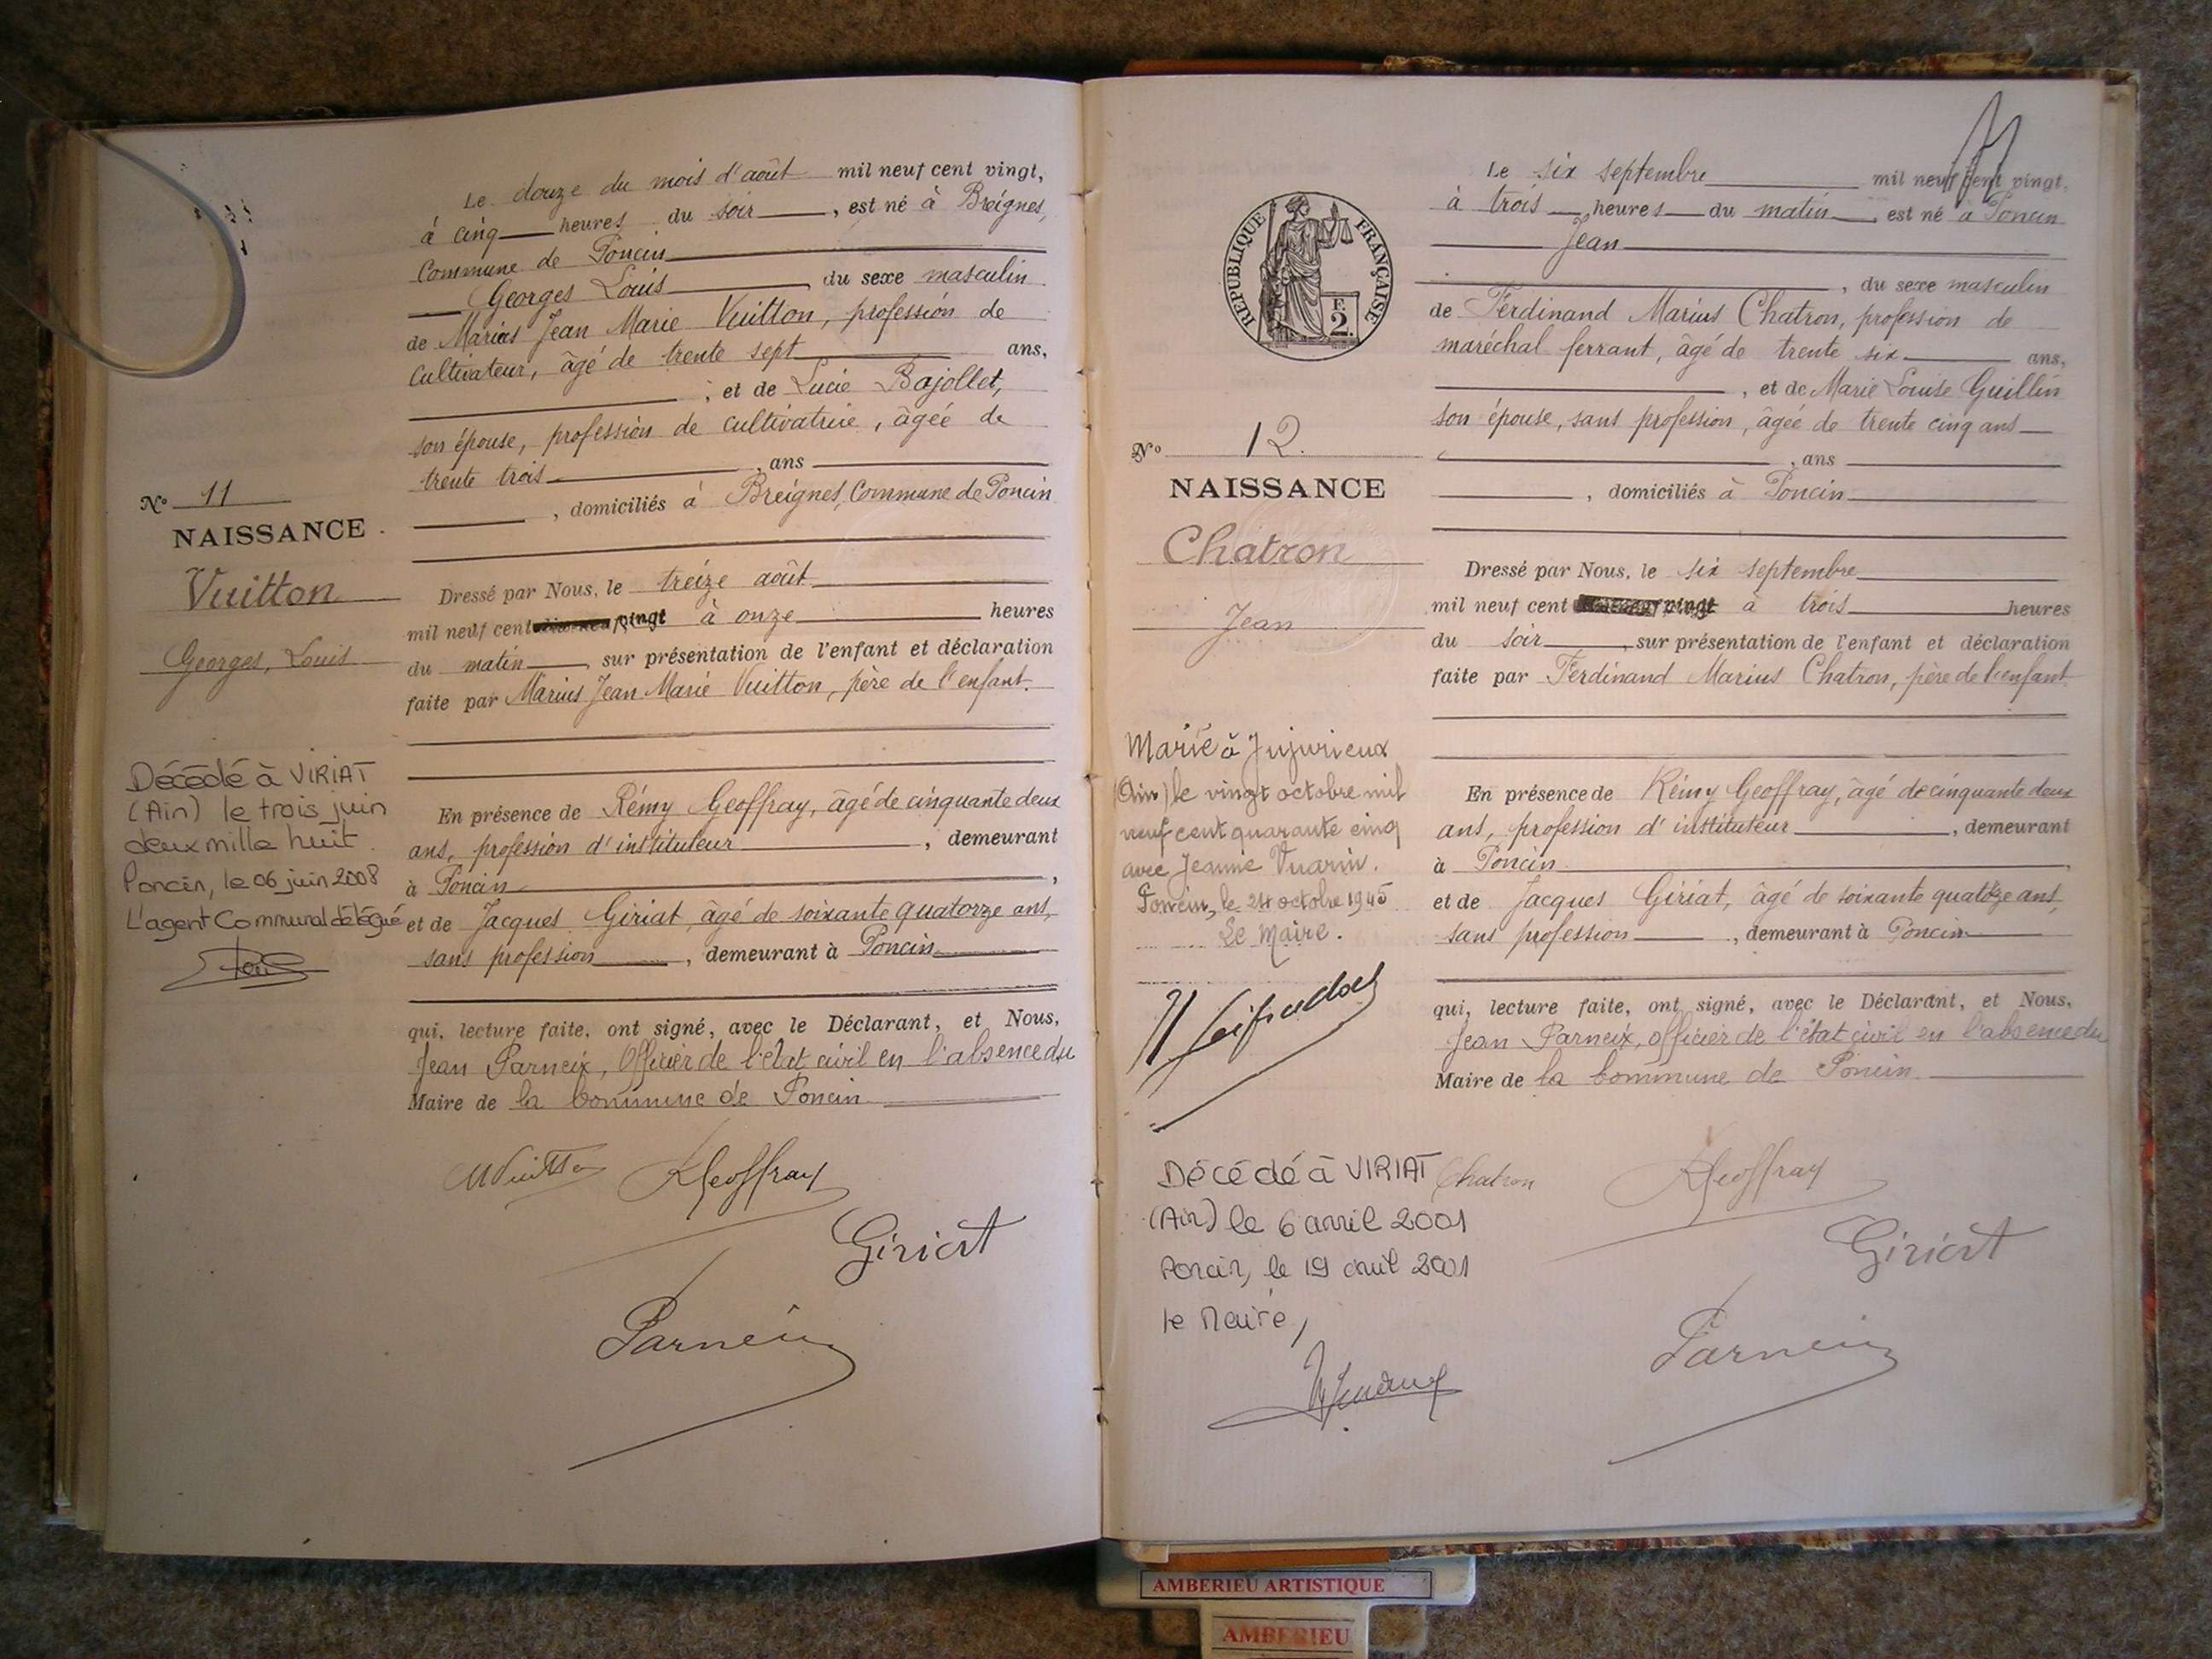 Le douze du mois d'août mil neuf cent vingt,
à cinq heures du soir, est né à Breignes,
Commune de Poncin
Georges Louis, du sexe masculin
de Marius Jean Marie Vuitton, profession de
cultivateur, âgé de trente sept ans,
, et de Lucie Bajollet,
son épouse, profession de cultivatrice, âgée de
trente trois, ans
, domiciliés à Breignes, Commune de Poncin
No 11
NAISSANCE
Vuitton
Georges, Louis
Dressé par Nous, le treize août
mil neuf cent vingt à onze heures
du matin, sur présentation de l'enfant et déclaration
faite par Marius Jean Marie Vuitton, père de l'enfant.
Décédé à VIRIAT
(Ain) le trois juin
deux mille huit.
Poncin, le 06 juin 2008
L'agent Communal délégué
En présence de Rémy Geoffray, âgé de cinquante deux
ans, profession d'instituteur, demeurant
à Poncin,
et de Jacques Giriat, âgé de soixante quatorze ans,
sans profession, demeurant à Poncin
qui, lecture faite, ont signé, avec le Déclarant, et Nous,
Jean Parneix, Officier de l'état civil en l'absence du
Maire de la Commune de Poncin
MVuitton RGeoffray
Giriat
Parneix
Le six septembre mil neuf cent vingt,
à trois heures du matin, est né à Poncin
Jean
, du sexe masculin
de Ferdinand Marius Chatron, profession de
maréchal ferrant, âgé de trente six ans,
, et de Marie Louise Guillin
son épouse, sans profession, âgée de trente cinq ans
, ans
, domiciliés à Poncin
REPUBLIQUE FRANÇAISE
F.
2.
No 12.
NAISSANCE
Chatron
Jean
Dressé par Nous, le six septembre
mil neuf cent vingt à trois heures
du soir, sur présentation de l'enfant et déclaration
faite par Ferdinand Marius Chatron, père de l'enfant
Marié à Jujurieux
(Ain) le vingt octobre mil
neuf cent quarante cinq
avec Jeanne Vuarin.
Poncin, le 24 octobre 1945
Le Maire.
En présence de Rémy Geoffray, âgé de cinquante deux
ans, profession d'instituteur, demeurant
à Poncin,
et de Jacques Giriat, âgé de soixante quatorze ans,
sans profession, demeurant à Poncin
qui, lecture faite, ont signé, avec le Déclarant, et Nous,
Jean Parneix, officier de l'état civil en l'absence du
Maire de la Commune de Poncin
Décédé à VIRIAT
(Ain) le 6 avril 2001
Poncin, le 19 avril 2001
le Maire,
Chatron RGeoffray
Giriat
Parneix
AMBERIEU ARTISTIQUE
AMBERIEU